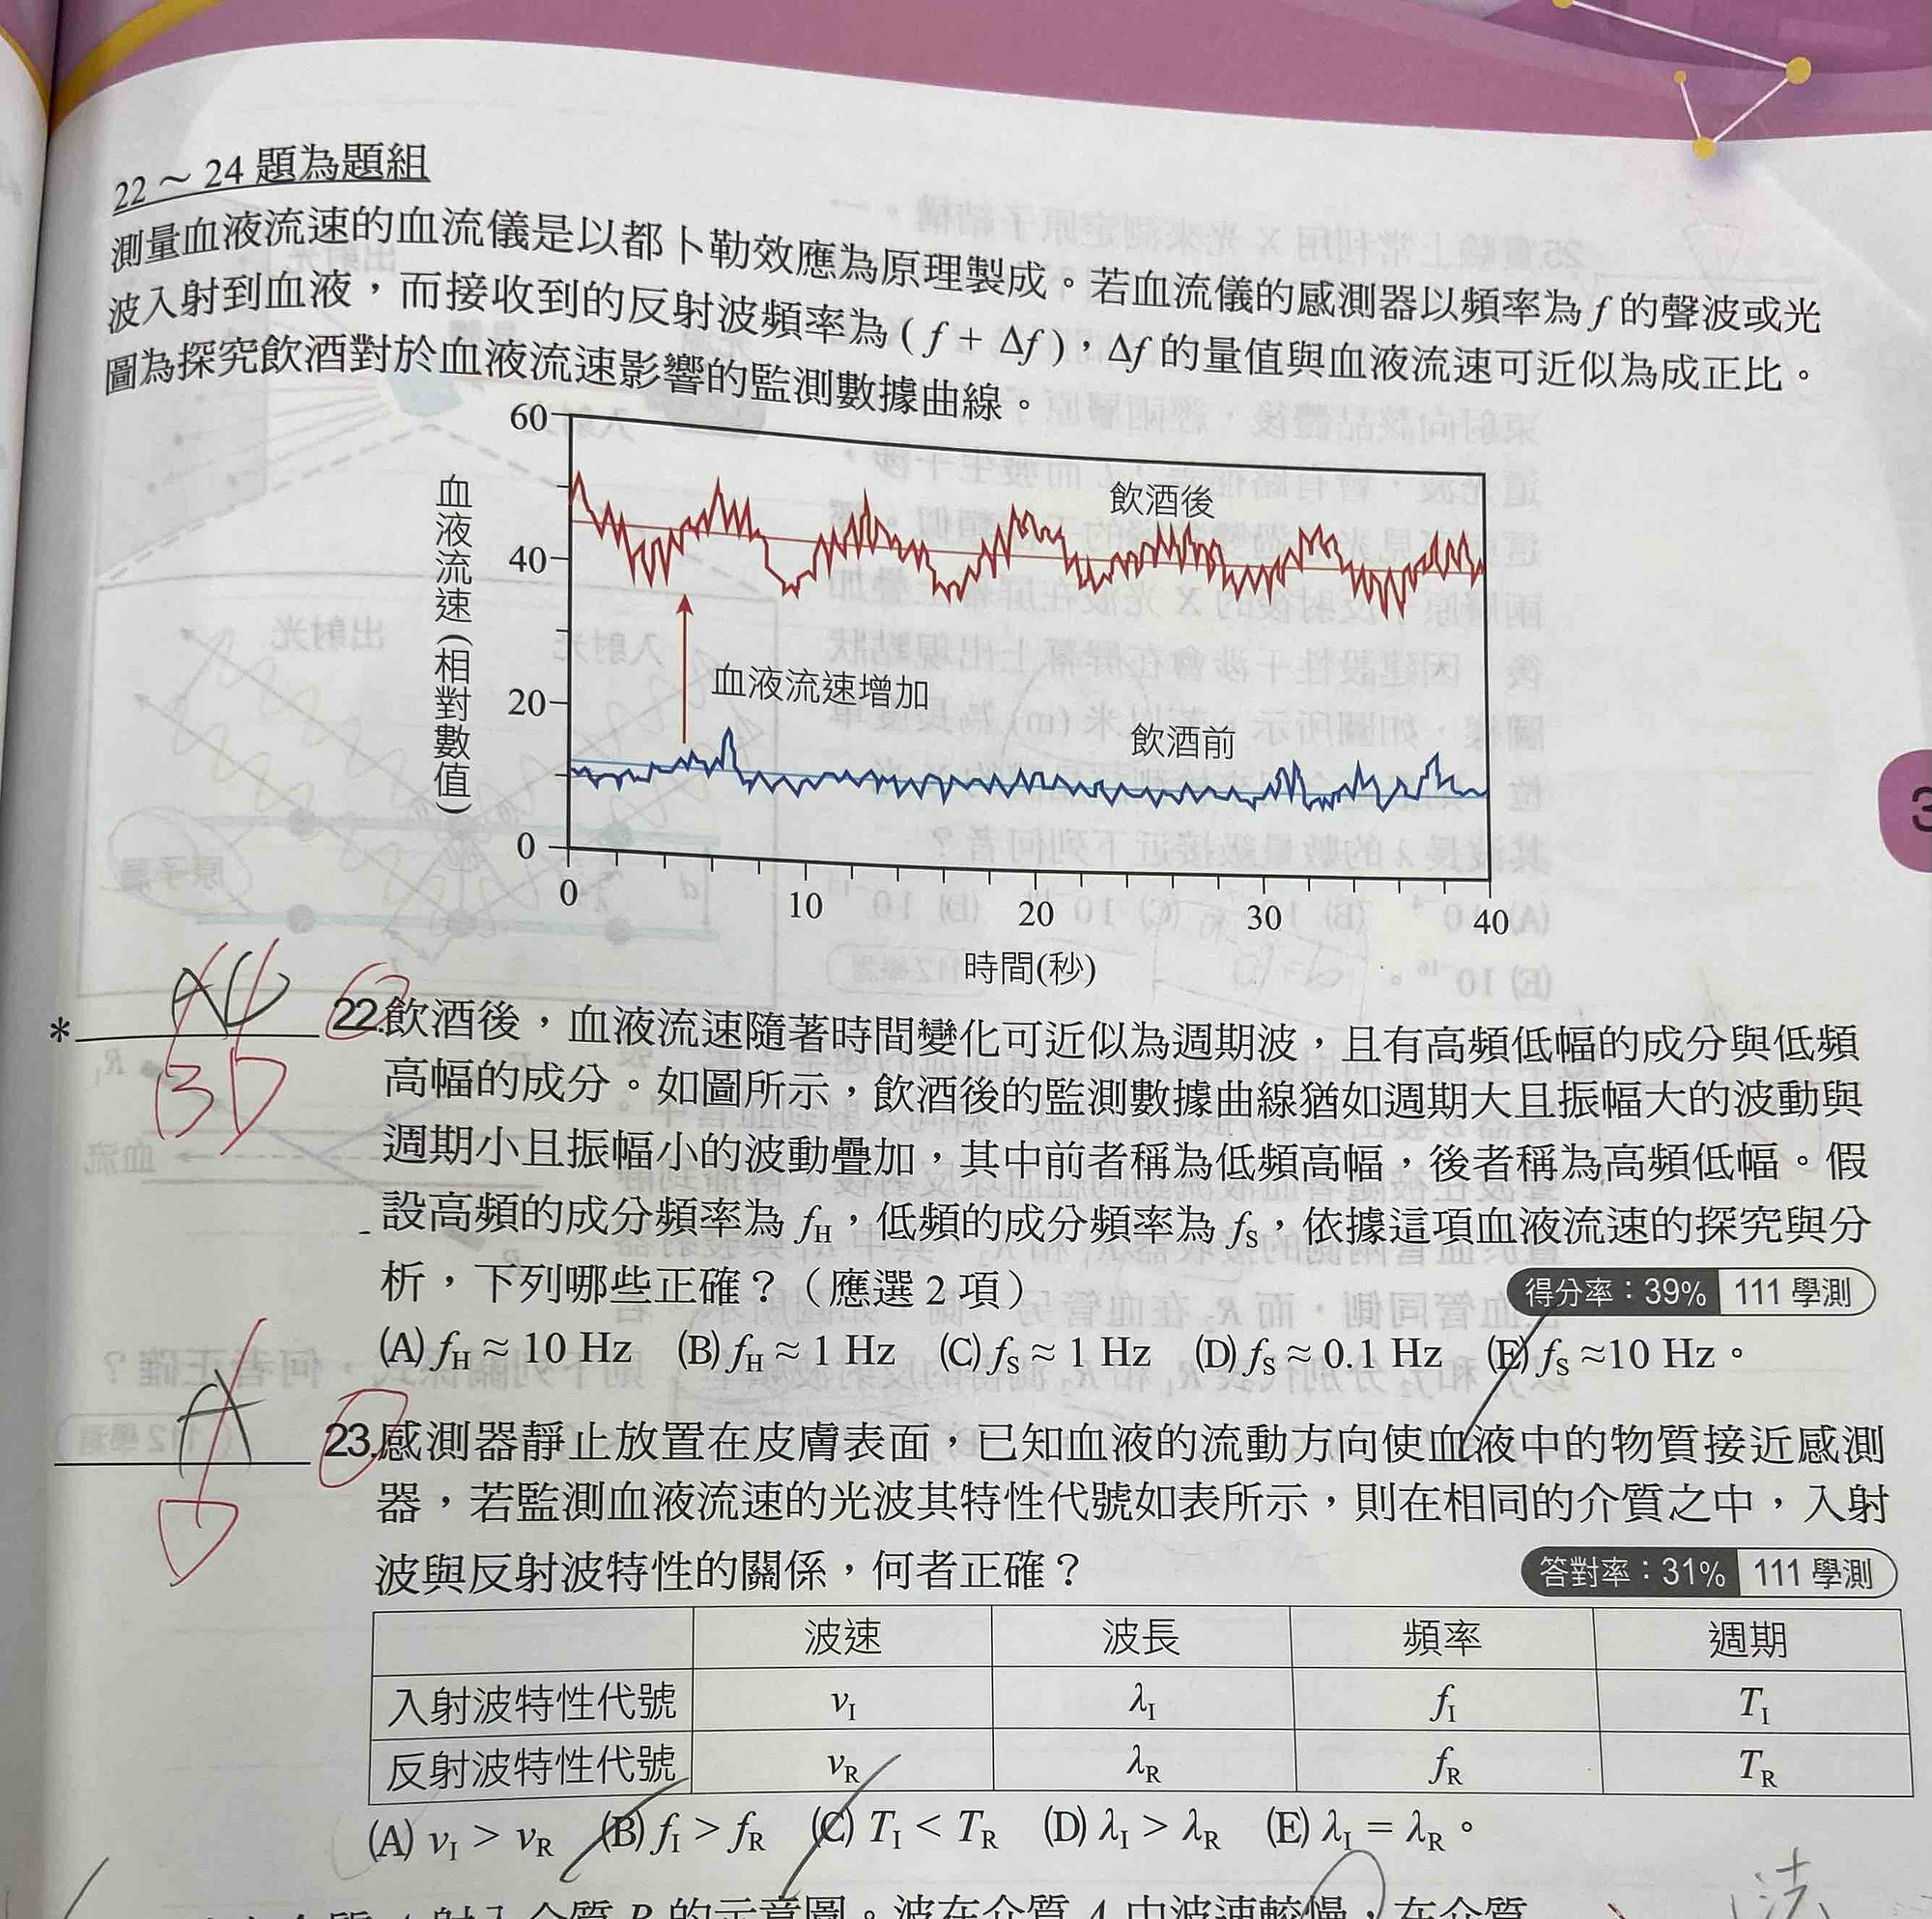 22～24 題為題組
測量血液流速的血流儀是以都卜勒效應為原理製成。若血流儀的感測器以頻率為 f 的聲波或光
波入射到血液，而接收到的反射波頻率為 ( f + Δf )，Δf 的量值與血液流速可近似為成正比。
圖為探究飲酒對於血液流速影響的監測數據曲線。
60
40
20
0
血液流速(相對數值)
飲酒後
血液流速增加
飲酒前
0
10
20
30
40
時間(秒)
AC
BD
*
22.飲酒後，血液流速隨著時間變化可近似為週期波，且有高頻低幅的成分與低頻
高幅的成分。如圖所示，飲酒後的監測數據曲線猶如週期大且振幅大的波動與
週期小且振幅小的波動疊加，其中前者稱為低頻高幅，後者稱為高頻低幅。假
設高頻的成分頻率為 fH，低頻的成分頻率為 fS，依據這項血液流速的探究與分
析，下列哪些正確？（應選 2 項）
得分率：39% 111 學測
(A) fH ≈ 10 Hz (B) fH ≈ 1 Hz (C) fS ≈ 1 Hz (D) fS ≈ 0.1 Hz (E) fS ≈10 Hz。
A
D
23.感測器靜止放置在皮膚表面，已知血液的流動方向使血液中的物質接近感測
器，若監測血液流速的光波其特性代號如表所示，則在相同的介質之中，入射
波與反射波特性的關係，何者正確？
答對率：31% 111 學測
波速 波長 頻率 週期
入射波特性代號 vI λI fI TI
反射波特性代號 vR λR fR TR
(A) vI > vR (B) fI > fR (C) TI < TR (D) λI > λR (E) λI = λR。
射入介質 B 的示意圖。波在介質 A 中波速較慢，在介質
法
3